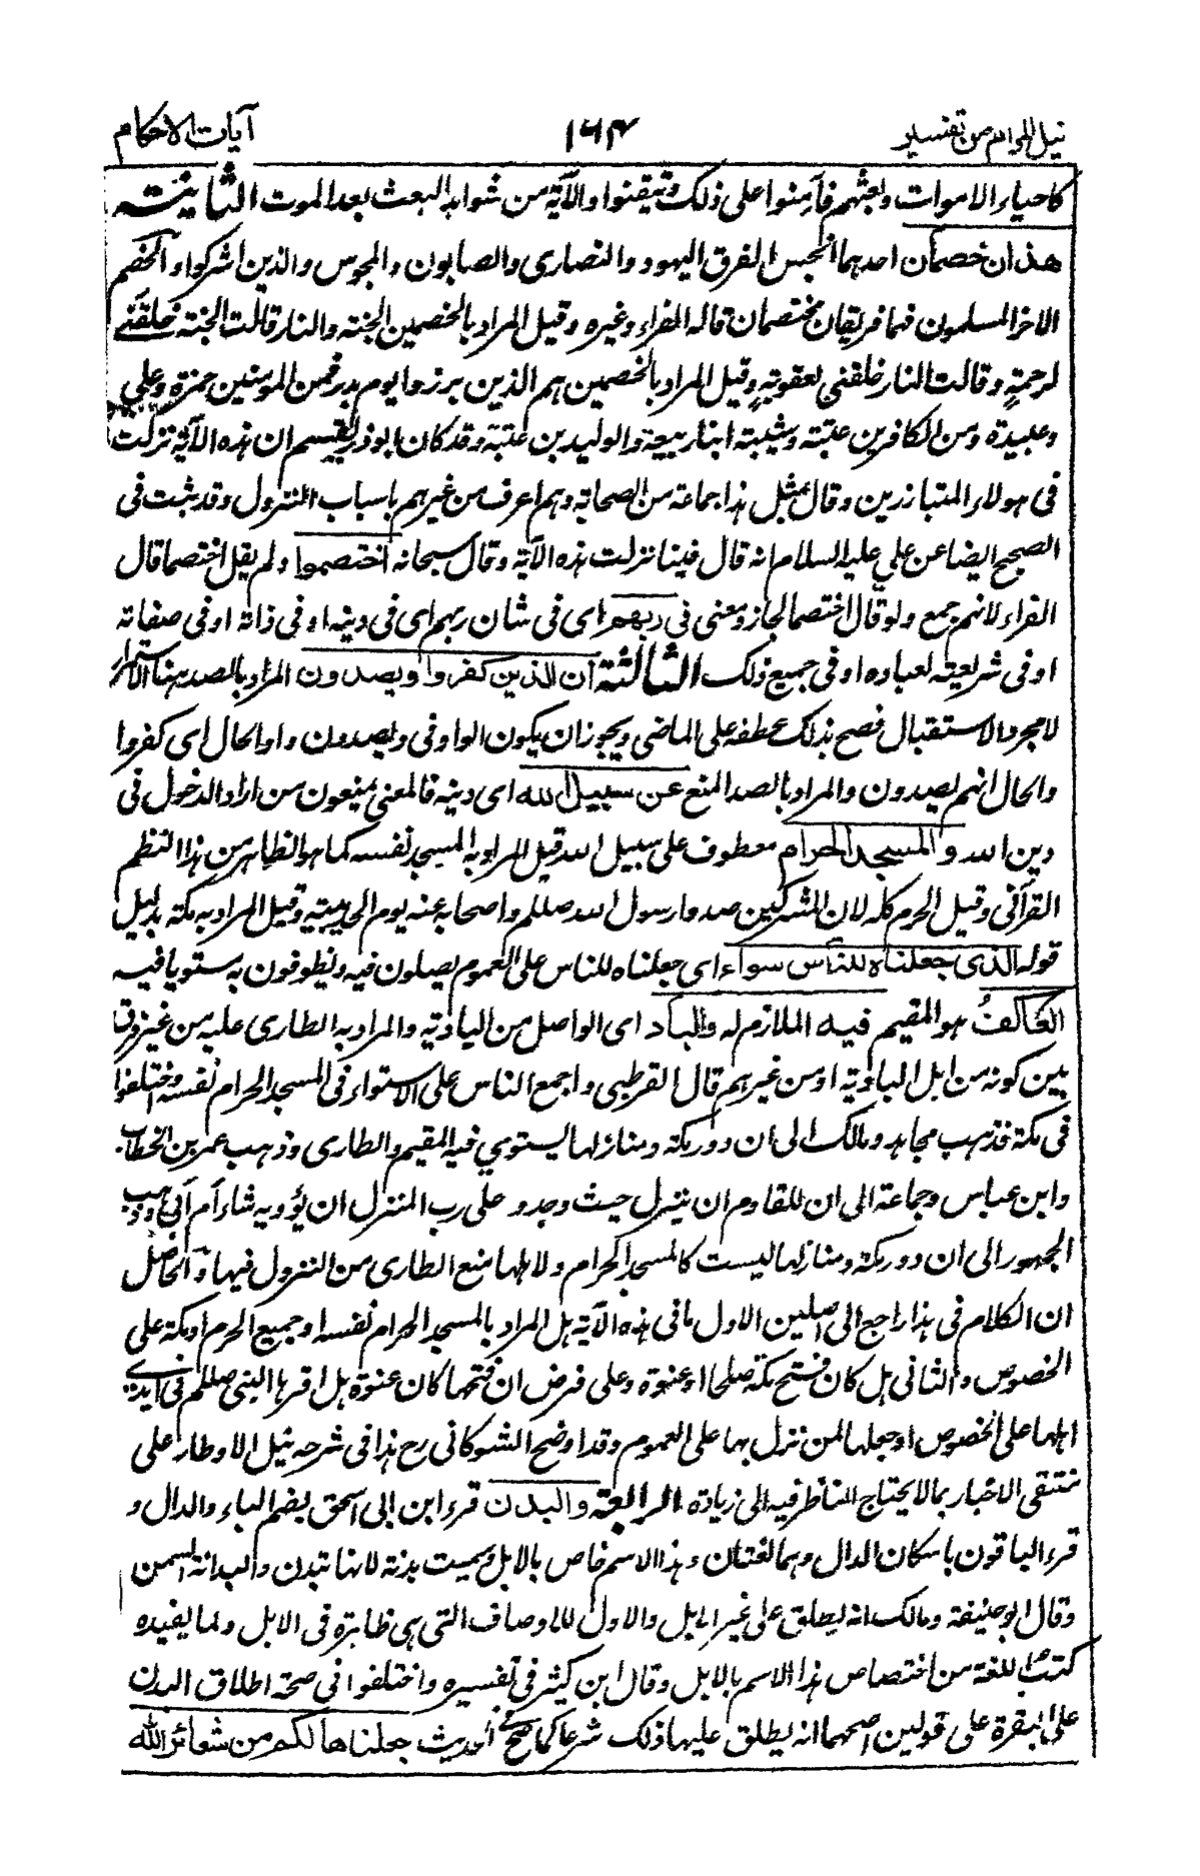 نيل المرام من تفسير ١٦٤ آيات الاحكام
كاحياء الاموات وبعثهم فآمنوا على ذلك وتيقنوا والآية من شواهد البعث بعد الموت الثانية
هذان خصمان احدهما انجس الفرق اليهود والنصارى والصابون والمجوس والذين اشركوا والخصم
الآخر المسلمون فهما فريقان مختصمان قاله الفراء وغيره وقيل المراد بالخصمين الجنة والنار قالت الجنة خلقني
لرحمته وقالت النار خلقني لعقوبته وقيل المراد بالخصمين هم الذين برزوا يوم بدر فمن المومنين حمزة وعلي
وعبيدة ومن الكافرين عتبة وشيبة ابنا ربيعة والوليد بن عتبة وقد كان ابو ذر يقسم ان هذه الآية نزلت
فى هولاء المتبارزين وقال بمثل هذا جماعة من الصحابة وهم اعرف من غيرهم باسباب النزول وقد ثبت فى
الصحيح ايضا عن علي عليه السلام انه قال فينا نزلت هذه الآية وقال سبحانه اختصموا ولم يقل اختصما قال
الفراء لانهم جمع ولو قال اختصما لجاز ومعنى فى ربهم اى فى شان ربهم اى فى دينه او فى ذاته او فى صفاته
او فى شريعته لعباده او فى جميع ذلك الثالثة ان الذين كفروا ويصدون المراد بالصد ههنا الاستمرار
لا مجرد الاستقبال فصح بذلك عطفه على الماضى ويجوز ان يكون الواو فى ويصدون واو الحال اى كفروا
والحال انهم يصدون والمراد بالصد المنع عن سبيل الله اى دينه فالمعنى يمنعون من اراد الدخول فى
دين الله والمسجد الحرام معطوف على سبيل الله قيل المراد به المسجد نفسه كما هو الظاهر من هذا النظم
القرآنى وقيل الحرم كله لان المشركين صدوا رسول الله صللم واصحابه عنه يوم الحديبية وقيل المراد به مكة بدليل
قوله الذى جعلناه للناس سواء اى جعلناه للناس على العموم يصلون فيه ويطوفون به مستويا فيه
العاكف هو المقيم فيه الملازم له والباد اى الواصل من البادية والمراد به الطارى عليه من غير فرق
بين كونه من اهل البادية او من غيرهم قال القرطبى واجمع الناس على الاستواء فى المسجد الحرام نفسه واختلفوا
فى مكة فذهب مجاهد ومالك الى ان دور مكة ومنازلها يستوي فيه المقيم والطارى وذهب عمر بن الخطاب
وابن عباس وجماعة الى ان للقادم ان ينزل حيث وجد وعلى رب المنزل ان يؤويه شاء أم أبى وذهب
الجمهور الى ان دور مكة ومنازلها ليست كالمسجد الحرام ولاهلها منع الطارى من النزول فيها والحاصل
ان الكلام فى هذا راجع الى اصلين الاول ما فى هذه الآية هل المراد بالمسجد الحرام نفسه او جميع الحرم او مكة على
الخصوص والثانى هل كان فتح مكة صلحا او عنوة وعلى فرض ان فتحها كان عنوة هل اقرها النبى صللم فى ايدي
اهلها على الخصوص او جعلها لمن نزل بها على العموم وقد اوضح الشوكانى رح هذا فى شرحه نيل الاوطار على
منتقى الاخبار بما لا يحتاج الناظر فيه الى زيادة الرابعة والبدن قرء ابن ابى اسحق بضم الباء والدال و
قرء الباقون باسكان الدال وهما لغتان وهذا الاسم خاص بالابل وسميت بدنة لانها تبدن والبدانة السمن
وقال ابو حنيفة ومالك انه يطلق على غير الابل والاول للاوصاف التى هى ظاهرة فى الابل ولما يفيده
كتب اللغة من اختصاص هذا الاسم بالابل وقال ابن كثير فى تفسيره واختلفوا فى صحة اطلاق البدن
على البقرة على قولين اصحهما انه يطلق عليها ذلك شرعا كما صح فى الحديث جعلناها لكم من شعائر الله